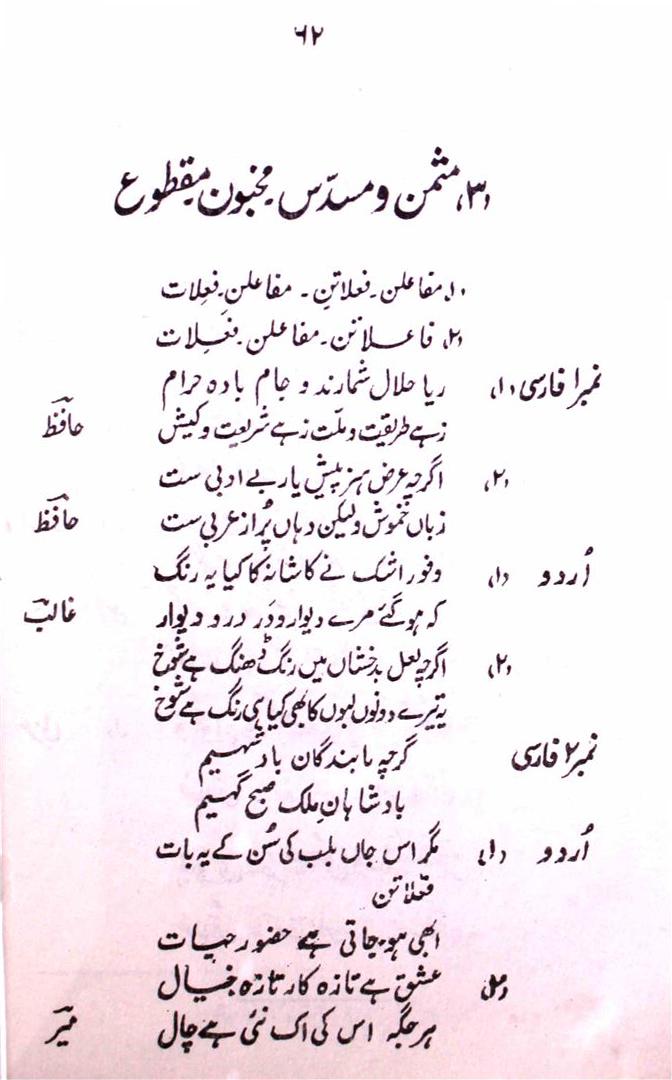 ۶۲
(۳) مثمن و مسدّس مخبون مقطوع
(۱) مفاعلن۔ فعلاتن۔ مفاعلن۔ فعلات
(۲) فاعلاتن۔ مفاعلن۔ فعلات
نمبر۱ فارسی (۱) ریا حلال شمارند و جام بادہ حرام
زہے طریقت و ملّت زہے شریعت و کیش حافظؔ
(۲) اگرچہ عرض ہنر پیش یار بے ادبی ست
زباں خموش ولیکن دہاں پُر از عربی ست حافظؔ
اُردو (۱) وفور اشک نے کاشانہ کا کیا یہ رنگ
کہ ہو گئے مرے دیوار و در در و دیوار غالبؔ
(۲) اگرچہ لعل بدخشاں میں رنگ ڈھنگ ہے شوخ
پہ تیرے دونوں لبوں کا بھی کیا ہی رنگ ہے شوخ
نمبر ۲ فارسی گرچہ ما بندگان بادشہیم
بادشاہانِ ملک صبح گہیم
اُردو (۱) مگر اس جاں بلب کی سُن کے یہ بات
فعلاتن
ابھی ہو جاتی ہے حضور حیات
(۲) عشق ہے تازہ کار تازہ خیال
ہر جگہ اس کی اک نئی ہے چال میرؔ